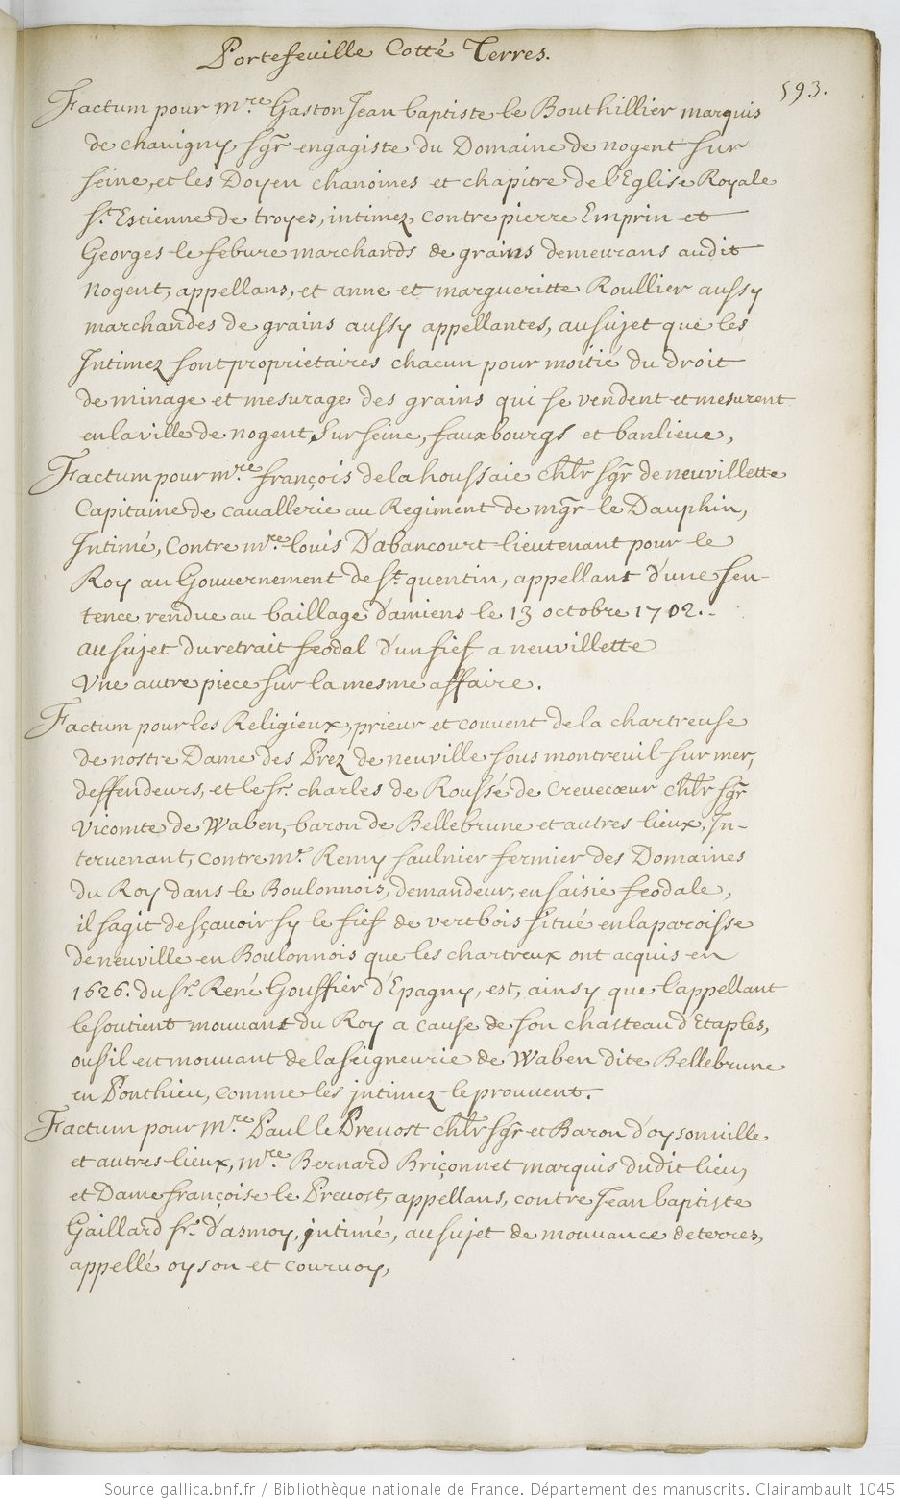 Portefeuille Cotté Terres.
593.
Factum pour mre Gaston Jean baptiste le Bouthillier marquis
de chauigny sgr engagiste du Domaine de nogent sur
seine, et les Doyen chanoines et chapitre de l'Eglise Royale
st. Estienne de troyes, intimez, contre pierre Emprin et
Georges le febure marchands de grains demeurans audit
nogent, appellans, et anne et margueritte Roullier aussy
marchandes de grains aussy appellantes, au sujet que les
Intimez sont proprietaires chacun pour moitié du droit
de minage et mesurage des grains qui se vendent et mesurent
en la ville de nogent sur seine, fauxbourgs et banlieue,
Factum pour mre. françois de la houssaie chlr sgr de neuvillette
Capitaine de cavallerie au Regiment de mgr le Dauphin,
Intimé, Contre mre. louis D'abancourt lieutenant pour le
Roy au Gouvernement de st. quentin, appellant d'une sen-
tence rendue au baillage d'amiens le 13 octobre 1702.
au sujet du retrait feodal d'un fief a neuvillette
Vne autre piece sur la mesme affaire.
Factum pour les Religieux, prieur et couvent de la chartreuse
de nostre Dame des Prez de neuville sous montreuil sur mer,
deffendeurs, et le sr. charles de Roussé de Crevecœur chlr sgr
Vicomte de Waben, baron de Bellebrune et autres lieux, In-
tervenant, contre mr. Remy saulnier fermier des Domaines
du Roy dans le Boulonnois, demandeur, en saisie feodale,
il s'agit de sçavoir sy le fief de vertbois situé en la paroisse
de neuville en Boulonnois que les chartreux ont acquis en
1626. du sr. René Gouffier d'Epagny, est, ainsy que l'appellant
le soutient mouvant du Roy a cause de son chasteau d'Etaples,
ou s'il est mouvant de la seigneurie de Waben dite Bellebrune
en Ponthieu, comme les intimez le prouvent.
Factum pour mre. Paul le Prevost chlr sgr et Baron d'oysonville.
et autres lieux, mre. Bernard Briçonnet marquis dudit lieu,
et Dame françoise le Prevost, appellans, contre Jean baptiste
Gaillard sr. d'asmoy, intimé, au sujet de mouvance de terres,
appellé oyson et courvoy,
Source gallica.bnf.fr / Bibliothèque nationale de France. Département des manuscrits. Clairambault 1045